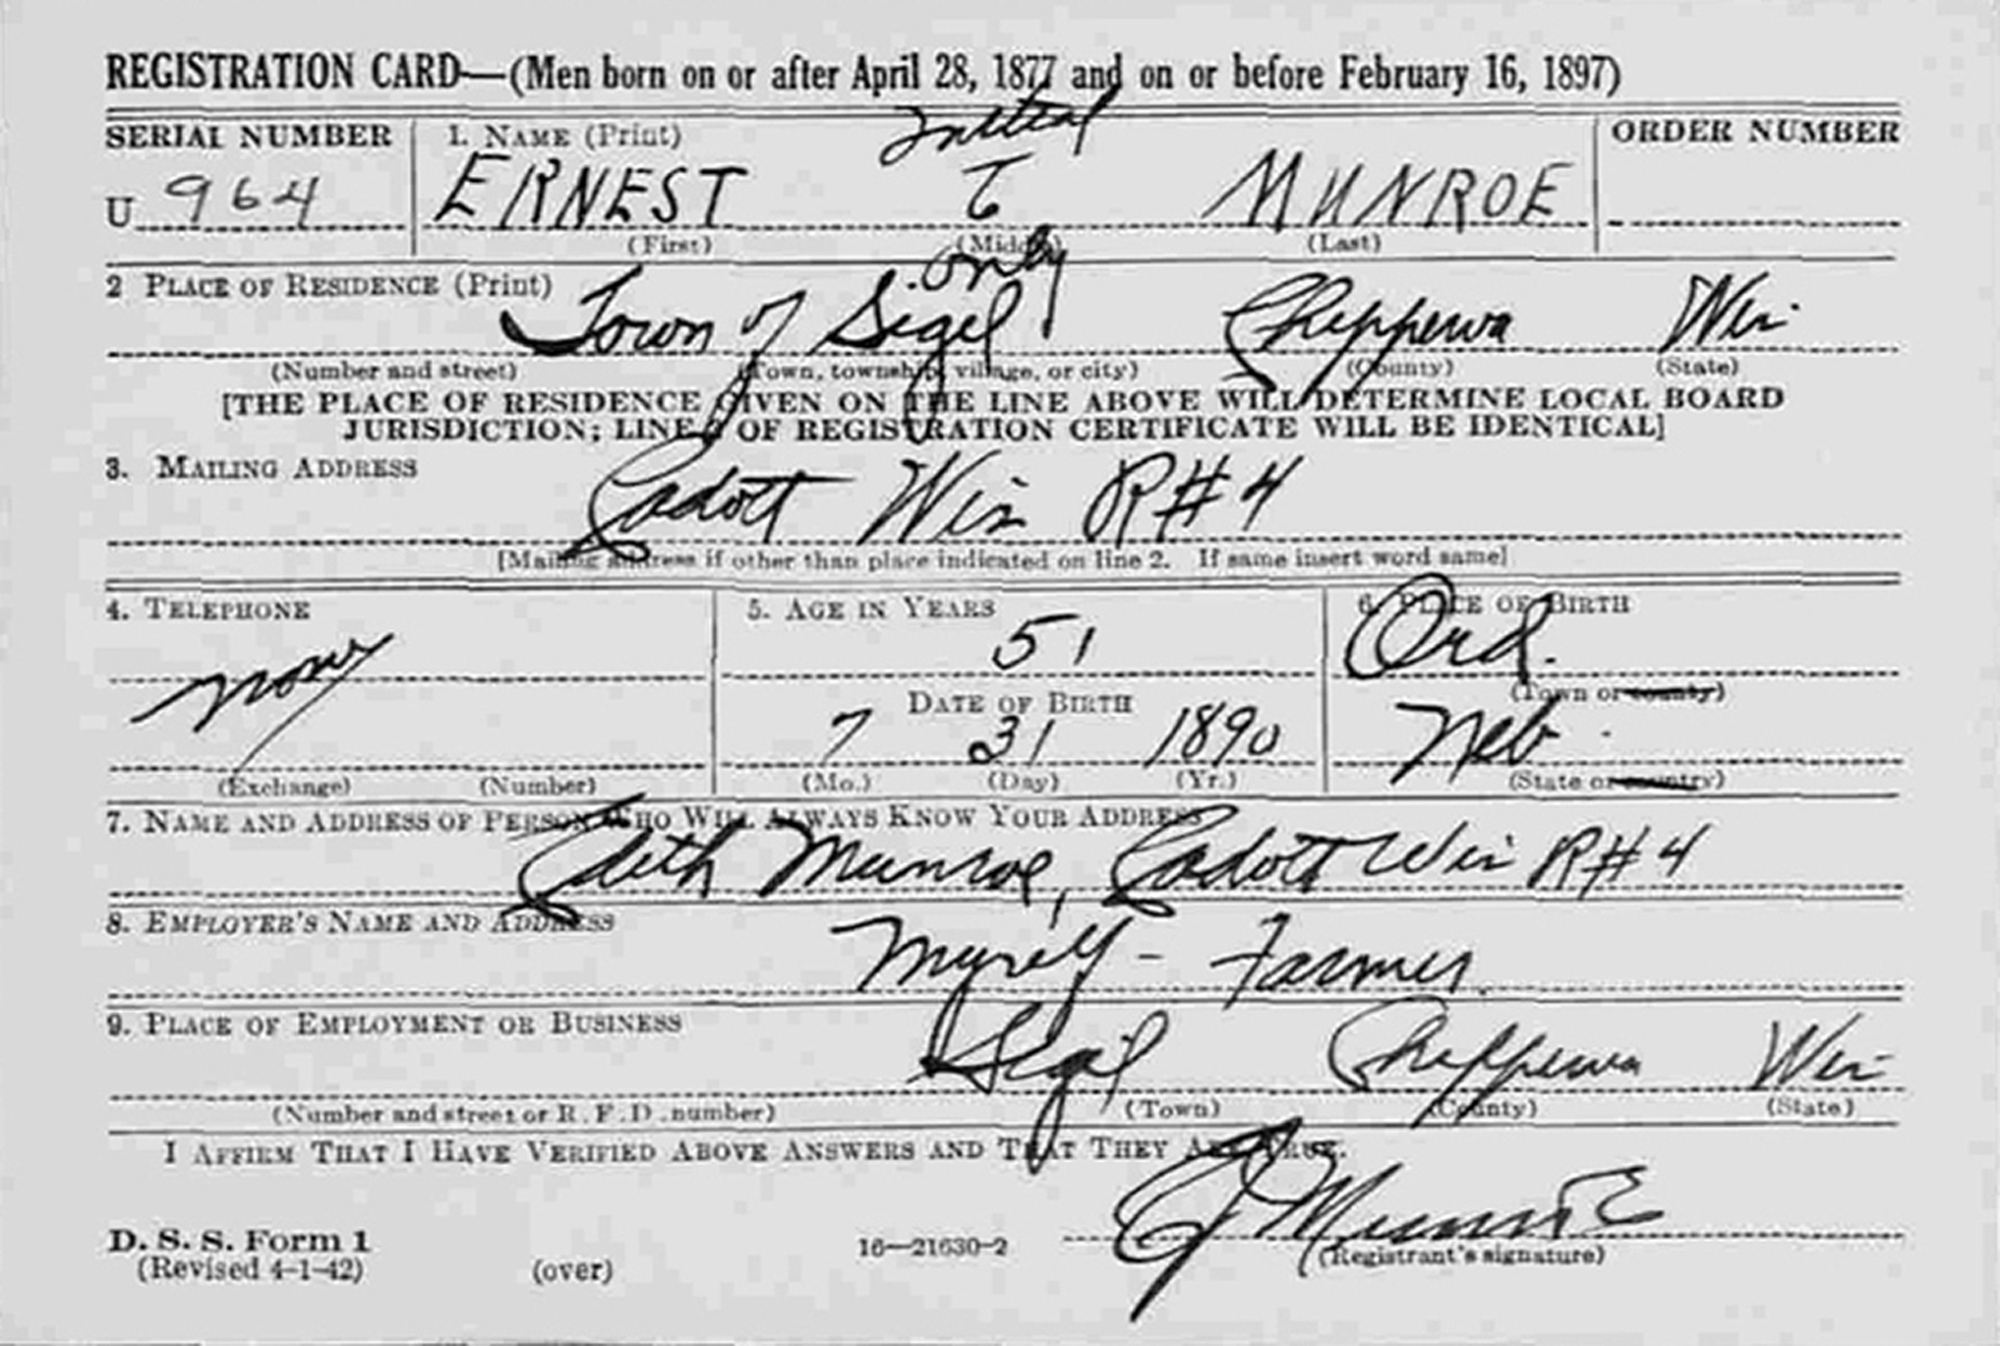 REGISTRATION CARD—(Men born on or after April 28, 1877 and on or before February 16, 1897)
SERIAL NUMBER 1. NAME (Print) Initial ORDER NUMBER
U 964 ERNEST MUNROE
(First) (Middle) (Last)
only
2 PLACE OF RESIDENCE (Print)
Town of Sigel Chippewa Wis.
(Number and street) (Town, township, village, or city) (County) (State)
[THE PLACE OF RESIDENCE GIVEN ON THE LINE ABOVE WILL DETERMINE LOCAL BOARD
JURISDICTION; LINE 2 OF REGISTRATION CERTIFICATE WILL BE IDENTICAL]
3. MAILING ADDRESS
Cadott Wis R#4
[Mailing address if other than place indicated on line 2. If same insert word same]
4. TELEPHONE 5. AGE IN YEARS 6. PLACE OF BIRTH
none 51 Ord.
DATE OF BIRTH (Town or county)
7 31 1890 Neb.
(Exchange) (Number) (Mo.) (Day) (Yr.) (State or country)
7. NAME AND ADDRESS OF PERSON WHO WILL ALWAYS KNOW YOUR ADDRESS
Edith Munroe, Cadott Wis R#4
8. EMPLOYER'S NAME AND ADDRESS
Myself - Farmer.
9. PLACE OF EMPLOYMENT OR BUSINESS
Sigel Chippewa Wis
(Number and street or R. F. D. number) (Town) (County) (State)
I AFFIRM THAT I HAVE VERIFIED ABOVE ANSWERS AND THAT THEY ARE TRUE.
Munroe
D. S. S. Form 1
(Revised 4-1-42) (over) 16—21630-2 (Registrant's signature)